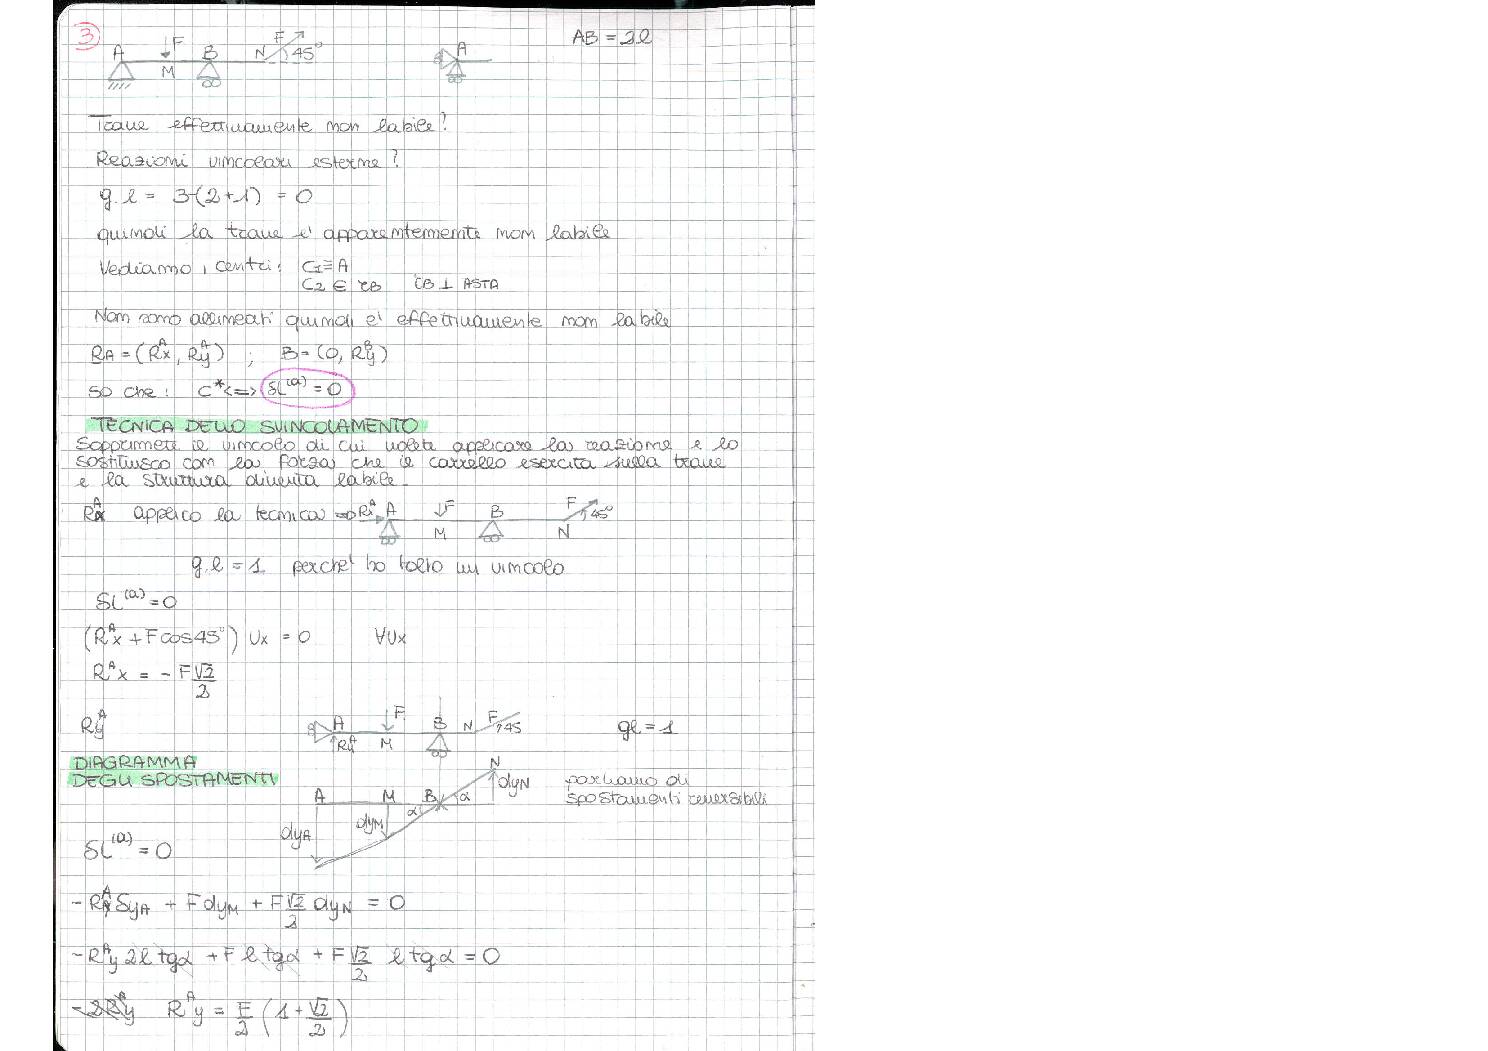 3
A F B N F 45° M
A
AB = 2l
Trave effettivamente non labile?
Reazioni vincolari esterne?
g.l = 3-(2+1) = 0
quindi la trave e' apparentemente non labile
Vediamo i centri: C1≡A
C2 ∈ rB rB ⊥ ASTA
Non sono allineati quindi e' effettivamente non labile
RA = (RxA, RyA) ; B = (0, RyB)
so che: C* <=> δL(a) = 0
TECNICA DELLO SVINCOLAMENTO
Sopprimete il vincolo di cui volete applicare la reazione e lo
sostituisco con la forza che il carrello esercita sulla trave
e la struttura diventa labile.
RxA applico la tecnica => RxA A F B F 45°
M N
g.l = 1 perche' ho tolto un vincolo
δL(a) = 0
(RxA + F cos45°) Ux = 0 ∀Ux
RxA = - F √2/2
RyA A F B N F 45 gl = 1
RyA M
DIAGRAMMA
DEGLI SPOSTAMENTI
A M B α N dyN
parliamo di
spostamenti reversibili
dyA dyM α
δL(a) = 0
- RyA δyA + F dyM + F √2/2 dyN = 0
- RyA 2l tgα + F l tgα + F √2/2 l tgα = 0
RyA = F/2 (1 + √2/2)